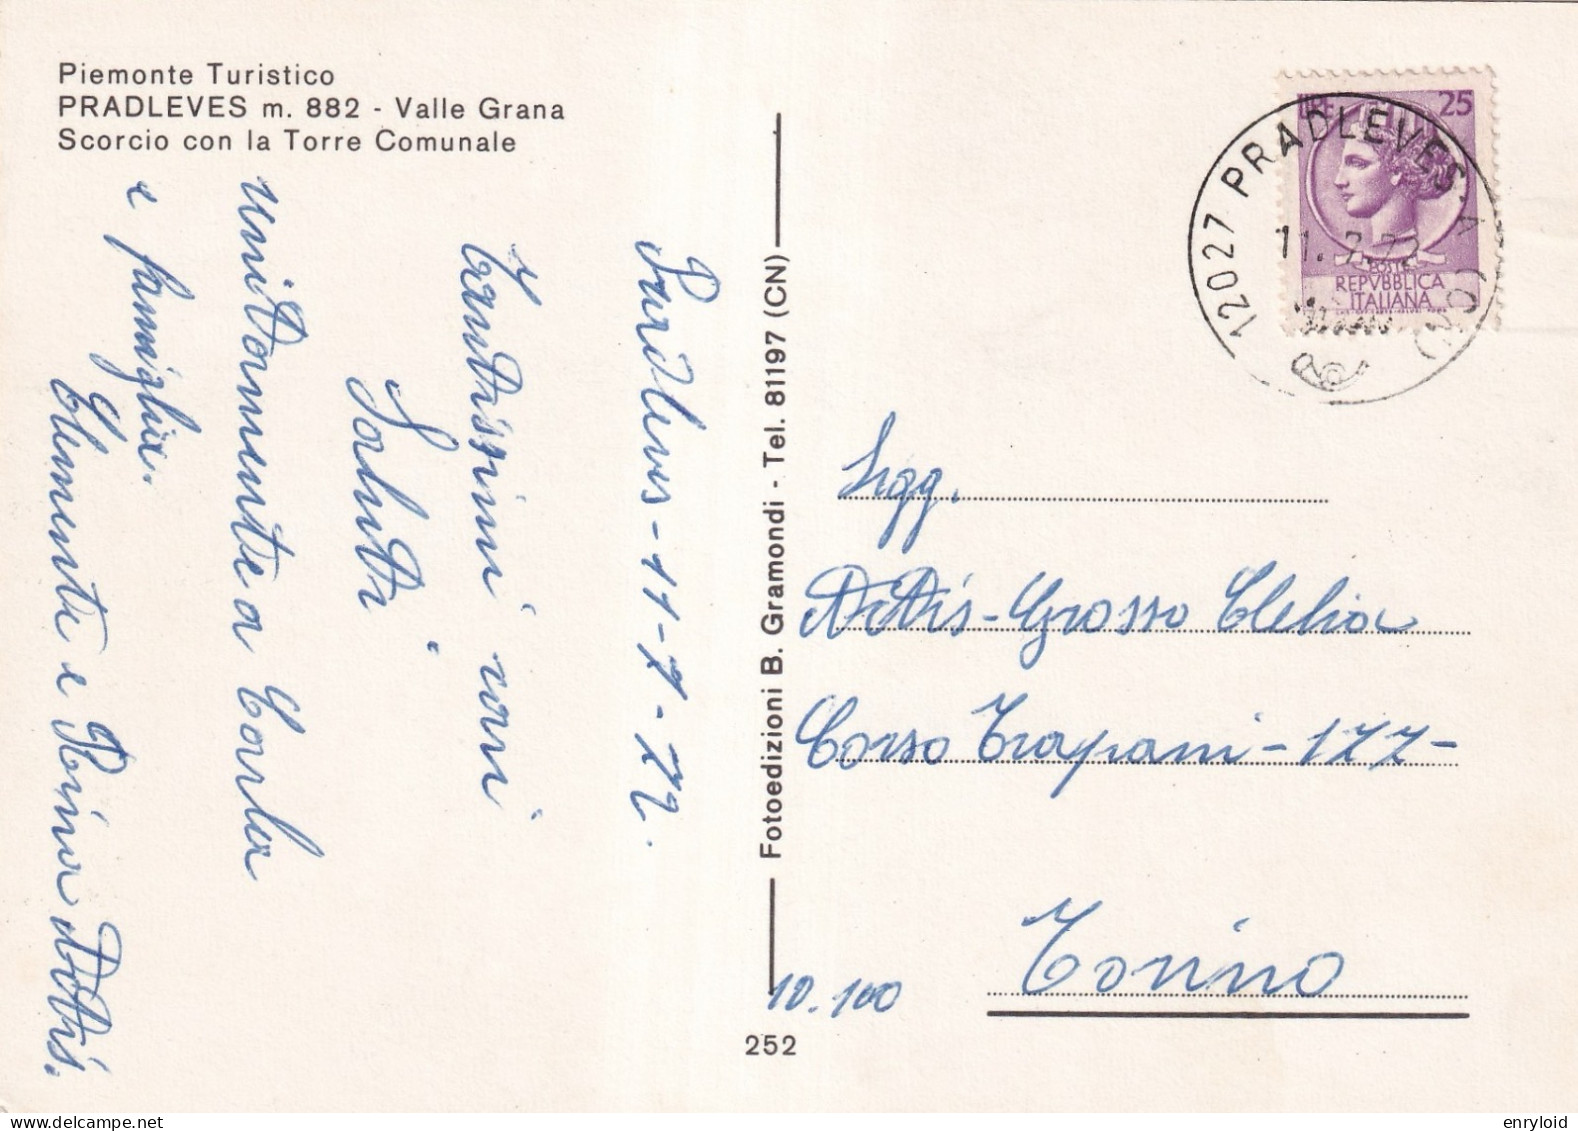 Piemonte Turistico
PRADLEVES m. 882 - Valle Grana
Scorcio con la Torre Comunale
Pradleves - 11 - 7 - 72.
Tantissimi cari
Saluti
unitamente a Carla
e famiglia.
Clemente e Rina Attis.
Fotoedizioni B. Gramondi - Tel. 81197 (CN)
252
LIRE 25
POSTE
REPVBBLICA
ITALIANA
12027 PRADLEVES
11.7.72
Segg.
Attis - Grosso Clelia
Corso Trapani - 177 -
10.100 Torino
enryloid
delcampe.net